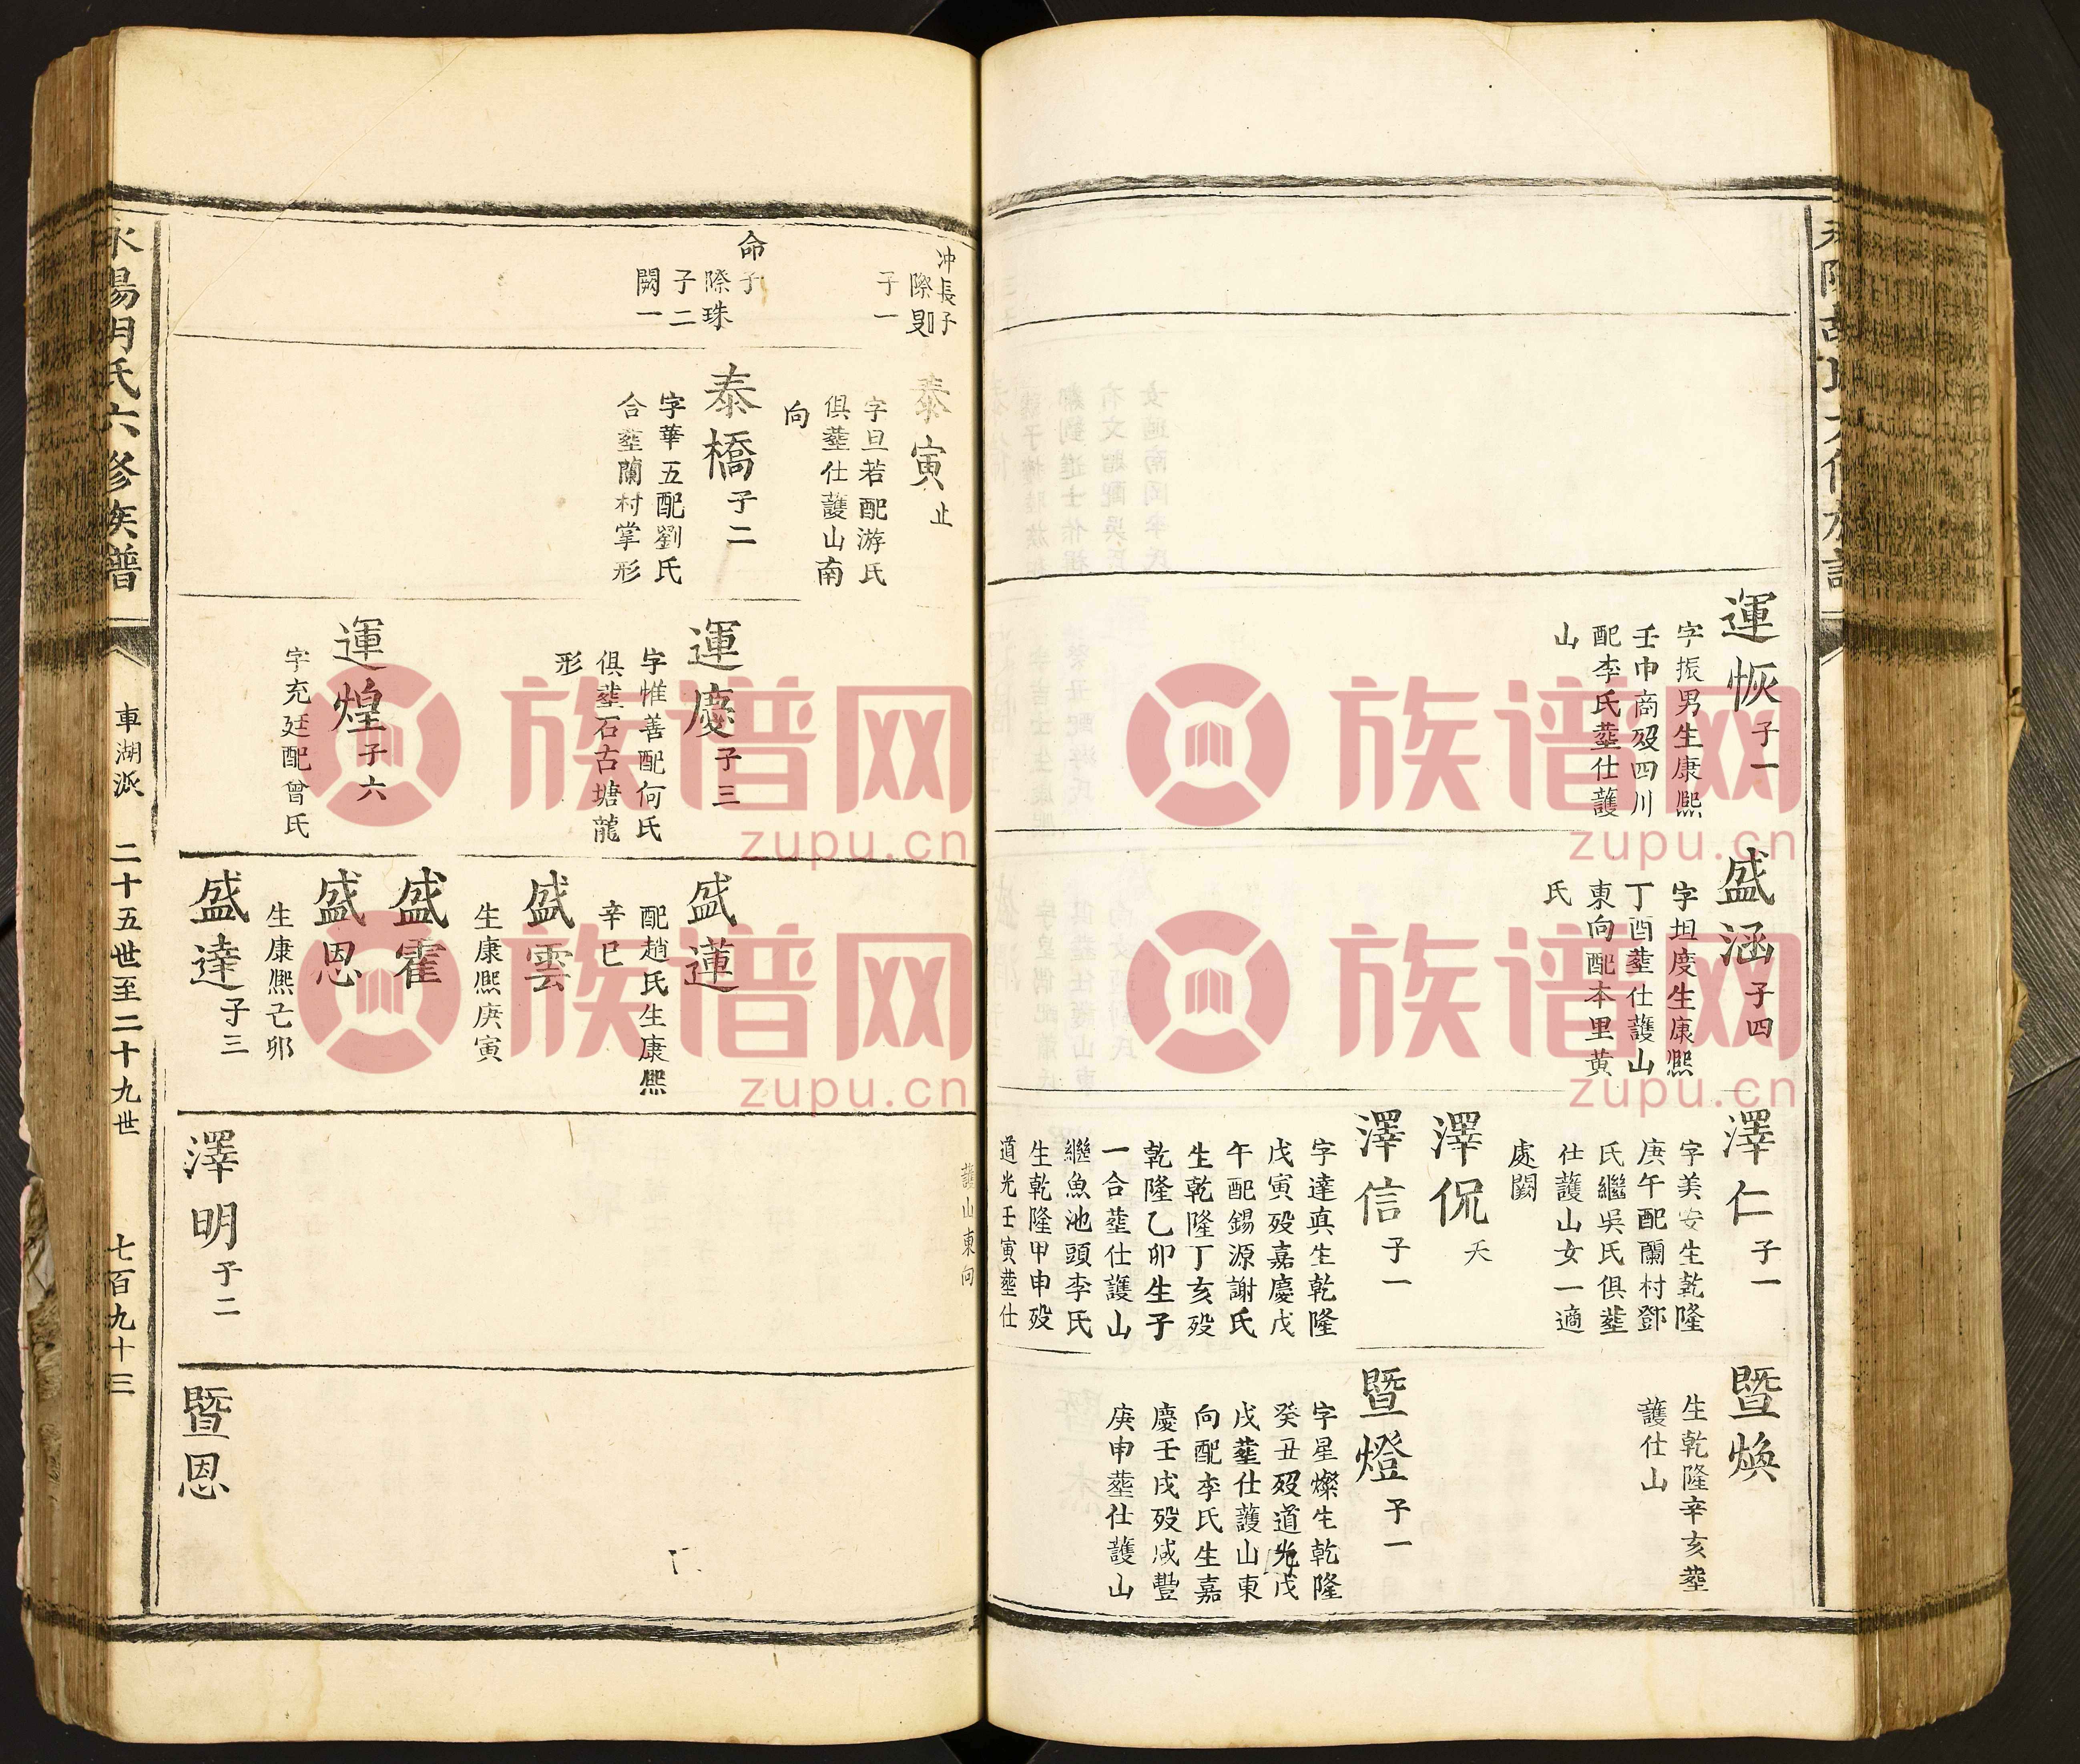 運恢子一
字振男生康熙
壬申商歿四川
配李氏塟仕護
山
盛涵子四
字坦度生康熙
丁酉塟仕護山
東向配本里黄
氏
澤仁子一
字美安生乾隆
庚午配蘭村鄧
氏繼吳氏俱塟
仕護山女一適
處闕
澤侃
澤信子一
字達真生乾隆
戊寅歿嘉慶戊
午配錫源謝氏
生乾隆丁亥歿
乾隆乙卯生子
一合塟仕護山
繼魚池頭李氏
生乾隆甲申歿
道光壬寅塟仕
暨煥
生乾隆辛亥塟
護仕山
暨燈子一
字星燦生乾隆
癸丑歿道光戊
戌塟仕護山東
向配李氏生嘉
慶壬戌歿咸豐
庚申塟仕護山
冲長子
子一
命子
際珠
子二
闕一
泰寅止
字旦若配游氏
俱塟仕護山南
向
泰橋子二
字華五配劉氏
合塟蘭村掌形
運慶子三
字惟善配何氏
俱塟石古塘龍
形
運煌子六
字充廷配曾氏
盛蓮
配趙氏生康熙
辛巳
盛雲
生康熙庚寅
盛霍
盛恩
生康熙己卯
盛達子三
護山東向
澤明子二
暨恩
氏六修族譜
車湖派
二十五世至二十九世
七百九十三
族谱网
zupu.cn
族谱网
zupu.cn
族谱网
zupu.cn
族谱网
zupu.cn